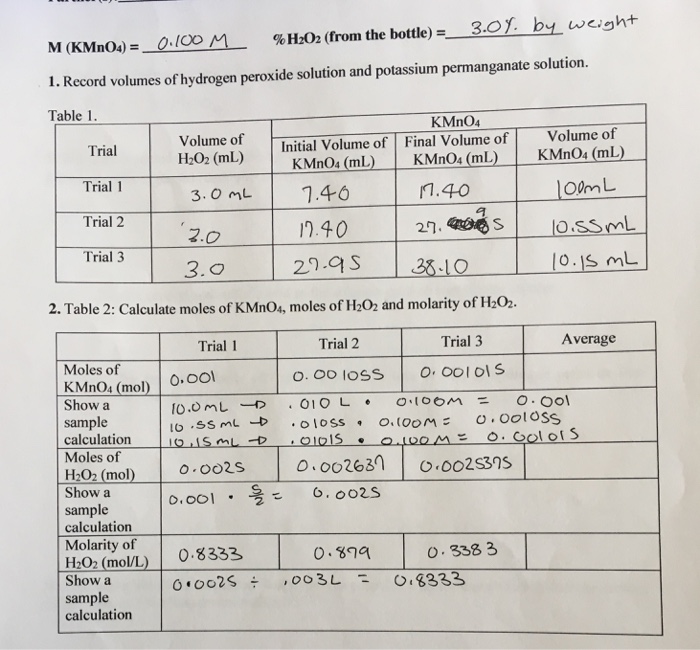 M (KMnO4) = 0.100 M % H2O2 (from the bottle) = 3.0%. by weight
1. Record volumes of hydrogen peroxide solution and potassium permanganate solution.
Table 1.
KMnO4
Trial Volume of H2O2 (mL) Initial Volume of KMnO4 (mL) Final Volume of KMnO4 (mL) Volume of KMnO4 (mL)
Trial 1 3.0 mL 7.40 17.40 100mL
Trial 2 3.0 17.40 27.95 10.55mL
Trial 3 3.0 27.95 38.10 10.15 mL
2. Table 2: Calculate moles of KMnO4, moles of H2O2 and molarity of H2O2.
Trial 1 Trial 2 Trial 3 Average
Moles of KMnO4 (mol) 0.001 0.001055 0.001015
Show a sample calculation
10.0mL → .010 L • 0.100M = 0.001
10.55 mL → .01055 • 0.100M = 0.001055
10.15mL → .01015 • 0.100M = 0.001015
Moles of H2O2 (mol) 0.0025 0.002637 0.0025375
Show a sample calculation 0.001 • 5/2 = 0.0025
Molarity of H2O2 (mol/L) 0.8333 0.879 0.3383
Show a sample calculation 0.0025 ÷ .003L = 0.8333